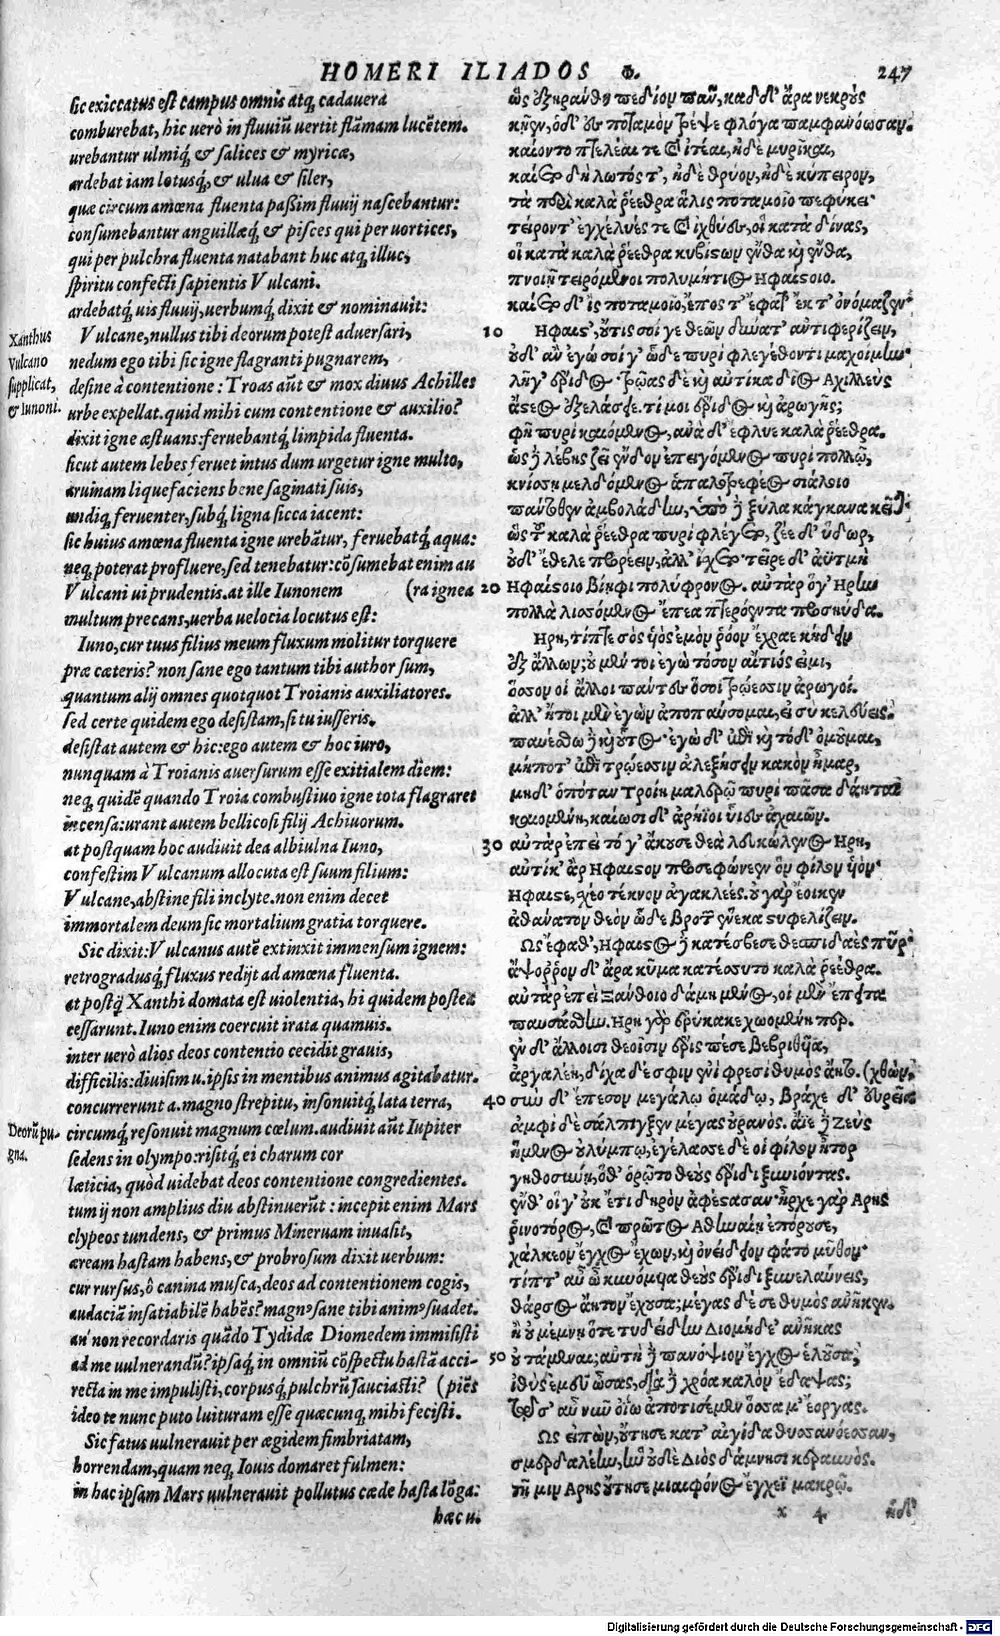 HOMERI ILIADOS Φ. 247
sic exiccatus est campus omnis atq; cadauera
comburebat, hic uerò in fluuiũ uertit flãmam lucẽtem.
urebantur ulmiq́; & salices & myricæ,
ardebat iam lotusq́;, & ulua & siler,
quæ circum amœna fluenta paßim fluuij nascebantur:
consumebantur anguillæq́; & pisces qui per uortices,
qui per pulchra fluenta natabant huc atq; illuc,
spiritu confecti sapientis Vulcani.
ardebatq́; uis fluuij, uerbumq́; dixit & nominauit:
Xanthus
Vulcano
supplicat,
& Iunoni.
Vulcane, nullus tibi deorum potest aduersari,
nedum ego tibi sic igne flagranti pugnarem,
desine à contentione: Troas aũt & mox diuus Achilles
urbe expellat. quid mihi cum contentione & auxilio?
dixit igne æstuans: feruebantq́; limpida fluenta.
sicut autem lebes feruet intus dum urgetur igne multo,
aruinam liquefaciens bene saginati suis,
undiq; feruenter, subq́; ligna sicca iacent:
sic huius amœna fluenta igne urebãtur, feruebatq́; aqua:
neq; poterat profluere, sed tenebatur: cõsumebat enim au
Vulcani ui prudentis. at ille Iunonem (ra ignea
multum precans, uerba uelocia locutus est:
Iuno, cur tuus filius meum fluxum molitur torquere
præ cæteris? non sane ego tantum tibi author sum,
quantum alij omnes quotquot Troianis auxiliatores.
sed certe quidem ego desistam, si tu iusseris.
desistat autem & hic: ego autem & hoc iuro,
nunquam à Troianis auersurum esse exitialem diem:
neq; quidẽ quando Troia combustiuo igne tota flagraret
incensa: urant autem bellicosi filij Achiuorum.
at postquam hoc audiuit dea albiulna Iuno,
confestim Vulcanum allocuta est suum filium:
Vulcane, abstine fili inclyte. non enim decet
immortalem deum sic mortalium gratia torquere.
Sic dixit: Vulcanus autẽ extinxit immensum ignem:
retrogradusq́; fluxus redijt ad amœna fluenta.
at postq̃ Xanthi domata est uiolentia, hi quidem postea
cessarunt. Iuno enim coercuit irata quamuis.
inter uerò alios deos contentio cecidit grauis,
difficilis: diuisim u. ipsis in mentibus animus agitabatur.
concurrerunt a. magno strepitu, insonuitq́; lata terra,
Deorũ pu-
gna.
circumq́; resonuit magnum cœlum. audiuit aũt Iupiter
sedens in olympo: risitq́; ei charum cor
læticia, quòd uidebat deos contentione congredientes.
tum ij non amplius diu abstinuerũt: incepit enim Mars
clypeos tundens, & primus Mineruam inuasit,
æream hastam habens, & probrosum dixit uerbum:
cur rursus, ô canina musca, deos ad contentionem cogis,
audaciã insatiabilẽ habẽs? magnꝰ sane tibi animꝰ suadet.
an' non recordaris quãdo Tydidæ Diomedem immisisti
ad me uulnerandũ? ipsaq́; in omniũ cõspectu hastã acci-
recta in me impulisti, corpusq́; pulchrũ sauciasti? (piẽs
ideo te nunc puto luituram esse quæcunq; mihi fecisti.
Sic fatus uulnerauit per ægidem fimbriatam,
horrendam, quam neq; Iouis domaret fulmen:
in hac ipsam Mars uulnerauit pollutus cæde hasta lõga:
hæc u.
ὣς ἐξηράνθη πεδίον πᾶν, καδ δ' ἄρα νεκροὺς
κῆεν, ὁ δ' ἐς ποταμὸν τρέψε φλόγα παμφανόωσαν.
καίοντο πτελέαι τε καὶ ἰτέαι, ἠδὲ μυρῖκαι,
καίετο δὴ λωτός τ', ἠδὲ θρύον, ἠδὲ κύπειρον,
τὰ περὶ καλὰ ῥέεθρα ἅλις ποταμοῖο πεφύκει·
τείροντ' ἐγχέλυές τε καὶ ἰχθύες, οἱ κατὰ δίνας,
οἳ κατὰ καλὰ ῥέεθρα κυβίστων ἔνθα κὶ ἔνθα,
πνοιῇ τειρόμενοι πολυμήτιος Ηφαίστοιο.
καίετο δ' ἲς ποταμοῖο, ἔπος τ' ἔφατ' ἔκ τ' ὀνόμαζεν·
10 Ηφαιστ', οὔτις σοί γε θεῶν δύνατ' αὐτιφερίζειν,
οὐδ' ἂν ἐγὼ σοί γ' ὧδε πυρὶ φλεγέθοντι μαχοίμην·
λῆγ' ἔριδος· Τρῶας δὲ κὶ αὐτίκα δῖος Αχιλλεὺς
ἄστεος ἐξελάσειε. τί μοι ἔριδος κὶ ἀρωγῆς;
φῆ πυρὶ καιόμενος, ἀνὰ δ' ἔφλυε καλὰ ῥέεθρα.
ὡς ᾗ λέβης ζεῖ ἔνδον ἐπειγόμενος πυρὶ πολλῷ,
κνίσῃ μελδόμενος ἁπαλοτρεφέος σιάλοιο
παντόθεν ἀμβολάδην, ὑπὸ ᾗ ξύλα κάγκανα κεῖτ·
ὣς τοῦ καλὰ ῥέεθρα πυρὶ φλέγετο, ζέε δ' ὕδωρ,
οὐδ' ἔθελε προρέειν, ἀλλ' ἴσχετο· τεῖρε δ' ἀϋτμὴ
20 Ηφαίστοιο βίηφι πολύφρονος. αὐτὰρ ὅγ' Ηρην
πολλὰ λισσόμενος ἔπεα πτερόεντα προσηύδα.
Ηρη, τίπτε σὸς υἱὸς ἐμὸν ῥόον ἔχραε κήδειν
ἐξ ἄλλων; οὐ μέν τοι ἐγὼ τόσον αἴτιός εἰμι,
ὅσσον οἱ ἄλλοι πάντες ὅσοι Τρώεσσιν ἀρωγοί.
ἀλλ' ἤτοι μὲν ἐγὼν ἀποπαύσομαι, εἰ σὺ κελεύεις.
παυέσθω ᾗ κὶ οὗτος· ἐγὼ δ' ἐπὶ κὶ τόδ' ὀμοῦμαι,
μήποτ' ἐπὶ τρώεσσιν ἀλεξήσειν κακὸν ἦμαρ,
μηδ' ὁπόταν Τροίη μαλερῷ πυρὶ πᾶσα δάηται
καιομένη, καίωσι δ' ἀρήϊοι υἷες ἀχαιῶν.
30 αὐτὰρ ἐπεὶ τό γ' ἄκουσε θεὰ λευκώλενος Ηρη,
αὐτίκ' ἂρ Ηφαιστον προσεφώνεεν ὃν φίλον υἱόν·
Ηφαιστε, χέο τέκνον ἀγακλεές. οὐ γὰρ ἔοικεν
ἀθάνατον θεὸν ὧδε βροτῶν ἕνεκα στυφελίζειν.
Ως ἔφαθ', Ηφαιστος ᾗ κατέσβεσε θεσπιδαὲς πῦρ·
ἄψορρον δ' ἄρα κῦμα κατέσσυτο καλὰ ῥέεθρα.
αὐτὰρ ἐπεὶ Ξάνθοιο δάμη μένος, οἱ μὲν ἔπειτα
παυσάσθην. Ηρη γὰρ ἐρύκακε χωομένη περ.
ἐν δ' ἄλλοισι θεοῖσιν ἔρις πέσε βεβριθυῖα,
ἀργαλέη, δίχα δέ σφιν ἐνὶ φρεσὶ θυμὸς ἄητο. (χθὼν,
40 σὺν δ' ἔπεσον μεγάλῳ ὁμάδῳ, βράχε δ' εὐρεῖα
ἀμφὶ δὲ σάλπιγξεν μέγας οὐρανός. ἄϊε ᾗ Ζεὺς
ἥμενος οὐλύμπῳ, ἐγέλασσε δέ οἱ φίλον ἦτορ
γηθοσύνῃ, ὅθ' ὁρᾶτο θεοὺς ἔριδι ξυνιόντας.
ἔνθ' οἵγ' οὐκ ἔτι δηρὸν ἀφέστασαν· ἦρχε γὰρ Αρης
ῥινοτόρος, καὶ πρῶτος Αθηναίῃ ἐπόρουσε,
χάλκεον ἔγχος ἔχων, κὶ ὀνείδειον φάτο μῦθον·
τίπτ' αὖ ὦ κυνόμυια θεοὺς ἔριδι ξυνελαύνεις,
θάρσος ἄητον ἔχουσα; μέγας δέ σε θυμὸς ἀνῆκεν.
ἦ οὐ μέμνῃ ὅτε τυδείδην Διομήδε' ἀνῆκας
50 οὐτάμεναι; αὐτὴ ᾗ πανόψιον ἔγχος ἑλοῦσα,
ἰθὺς ἐμεῦ ὦσας, διὰ ᾗ χρόα καλὸν ἔδαψας;
τῷ σ' αὖ νῦν ὀΐω ἀποτισέμεν ὅσσα μ' ἔοργας.
Ως εἰπὼν, οὔτησε κατ' αἰγίδα θυσσανόεσσαν,
σμερδαλέην, ἣν οὐδὲ Διὸς δάμνησι κεραυνός.
τῇ μιν Αρης οὔτησε μιαιφόνος ἔγχεϊ μακρῷ.
x 4 ἡ δ'
Digitalisierung gefördert durch die Deutsche Forschungsgemeinschaft - DFG